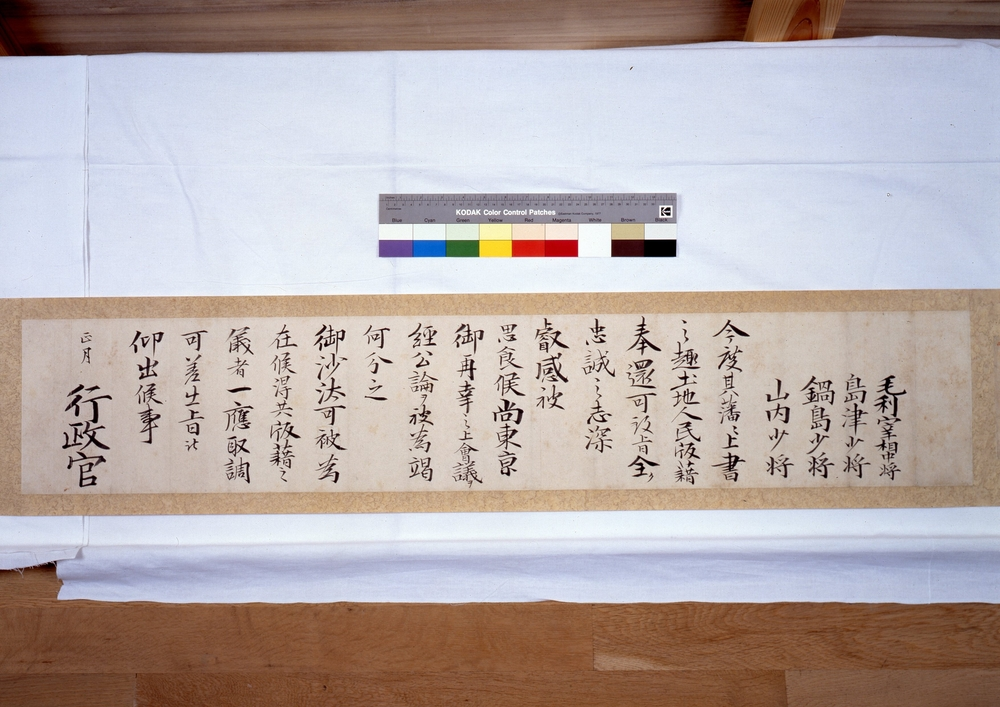 KODAK Color Control Patches
Blue Cyan Green Yellow Red Magenta White Brown Black
毛利宰相中将
島津少将
鍋島少将
山内少将
今度其藩々上書
之趣土地人民版籍
奉還可致旨全ク
忠誠之志深
叡感被
思食候尚東京
御再幸之上會議ヲ
經公論ヲ被為竭
何分之
御沙汰可被為
在候得共版籍之
儀者一應取調
可差出旨被
仰出候事
正月
行政官